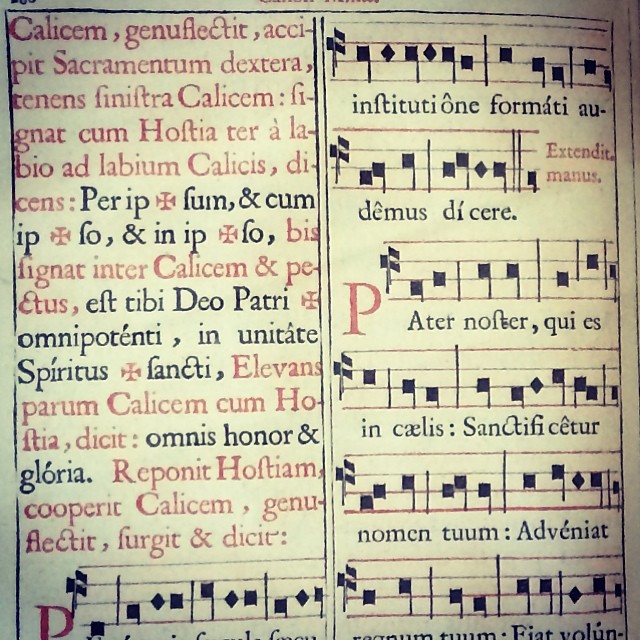 Calicem, genuflectit, acci-
pit Sacramentum dextera,
tenens ſiniſtra Calicem: ſi-
gnat cum Hoſtia ter à la-
bio ad labium Calicis, di-
cens: Per ip ✠ ſum, & cum
ip ✠ ſo, & in ip ✠ ſo, bis
ſignat inter Calicem & pe-
ctus, eſt tibi Deo Patri ✠
omnipoténti, in unitâte
Spíritus ✠ ſancti, Elevans
parum Calicem cum Ho-
ſtia, dicit: omnis honor &
glória. Reponit Hoſtiam,
cooperit Calicem, genu-
flectit, ſurgit & dicit:
P
inſtituti ône formáti au-
Extendit
manus.
dêmus dí cere.
PAter noſter, qui es
in cælis: Sanctifi cêtur
nomen tuum: Advéniat
regnum tuum: Fiat volún-